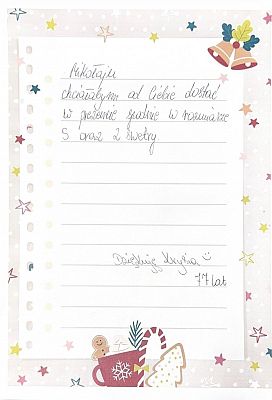 Mikołaju
chciałabym od Ciebie dostać
w prezencie spodnie w rozmiarze
S oraz 2 swetry
Dziękuję
77 lat